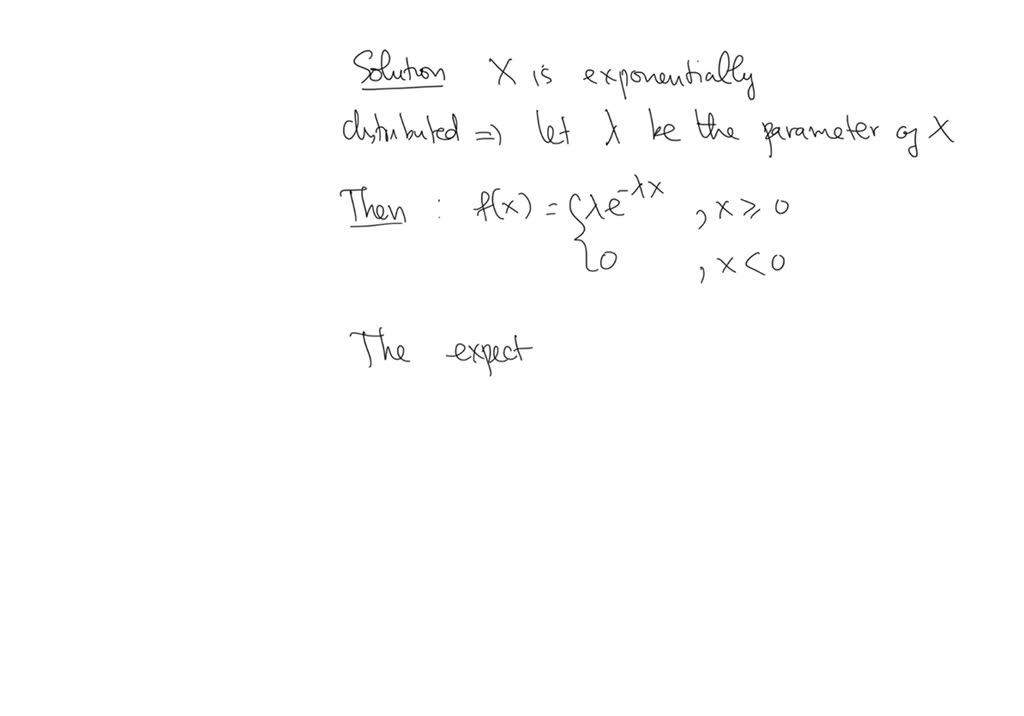 Solution X is exponentially
distributed => let λ be the parameter of X
Then : f(x) = { λe^-λx , x ≥ 0
0 , x < 0
The expect